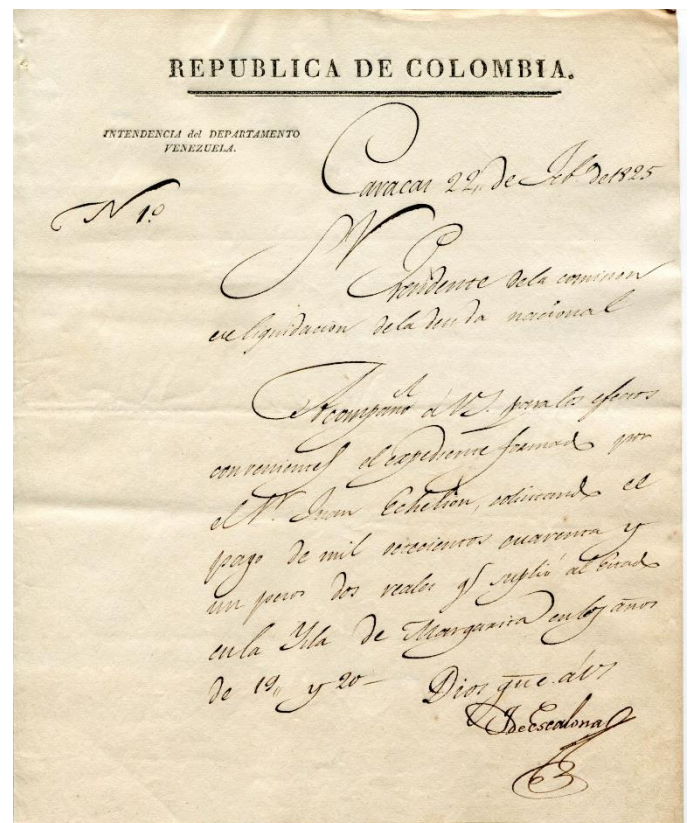 REPUBLICA DE COLOMBIA.
INTENDENCIA del DEPARTAMENTO
VENEZUELA.
Caracas 22,, de Feb.º de 1825
N 1º
Sr. Presidente de la comision
de liquidacion de la deuda nacional
Acompaño á VS. para los efectos
convenientes el expediente formado por
el Sr. Juan Echelion, solicitando el
pago de mil cuarenta y
un pesos dos reales qe suplió al Estado
en la Ysla de Margarita en los años
de 19,, y 20 — Dios gue. á VS
J de Escalona